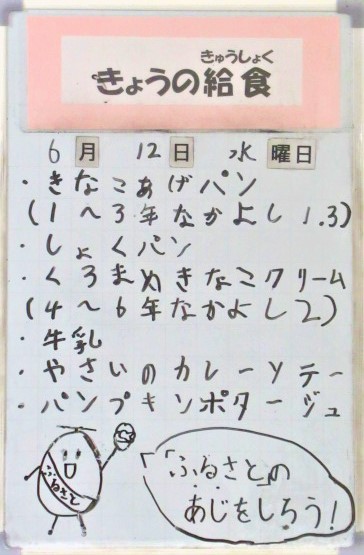 きゅうしょく
きょうの給食
6月 12日 水曜日
・きなこあげパン
(1～3年なかよし1.3)
・しょくパン
・くろまめきなこクリーム
(4～6年なかよし2)
・牛乳
・やさいのカレーソテー
・パンプキンポタージュ
ふるさと
「ふるさと」の
あじをしろう!